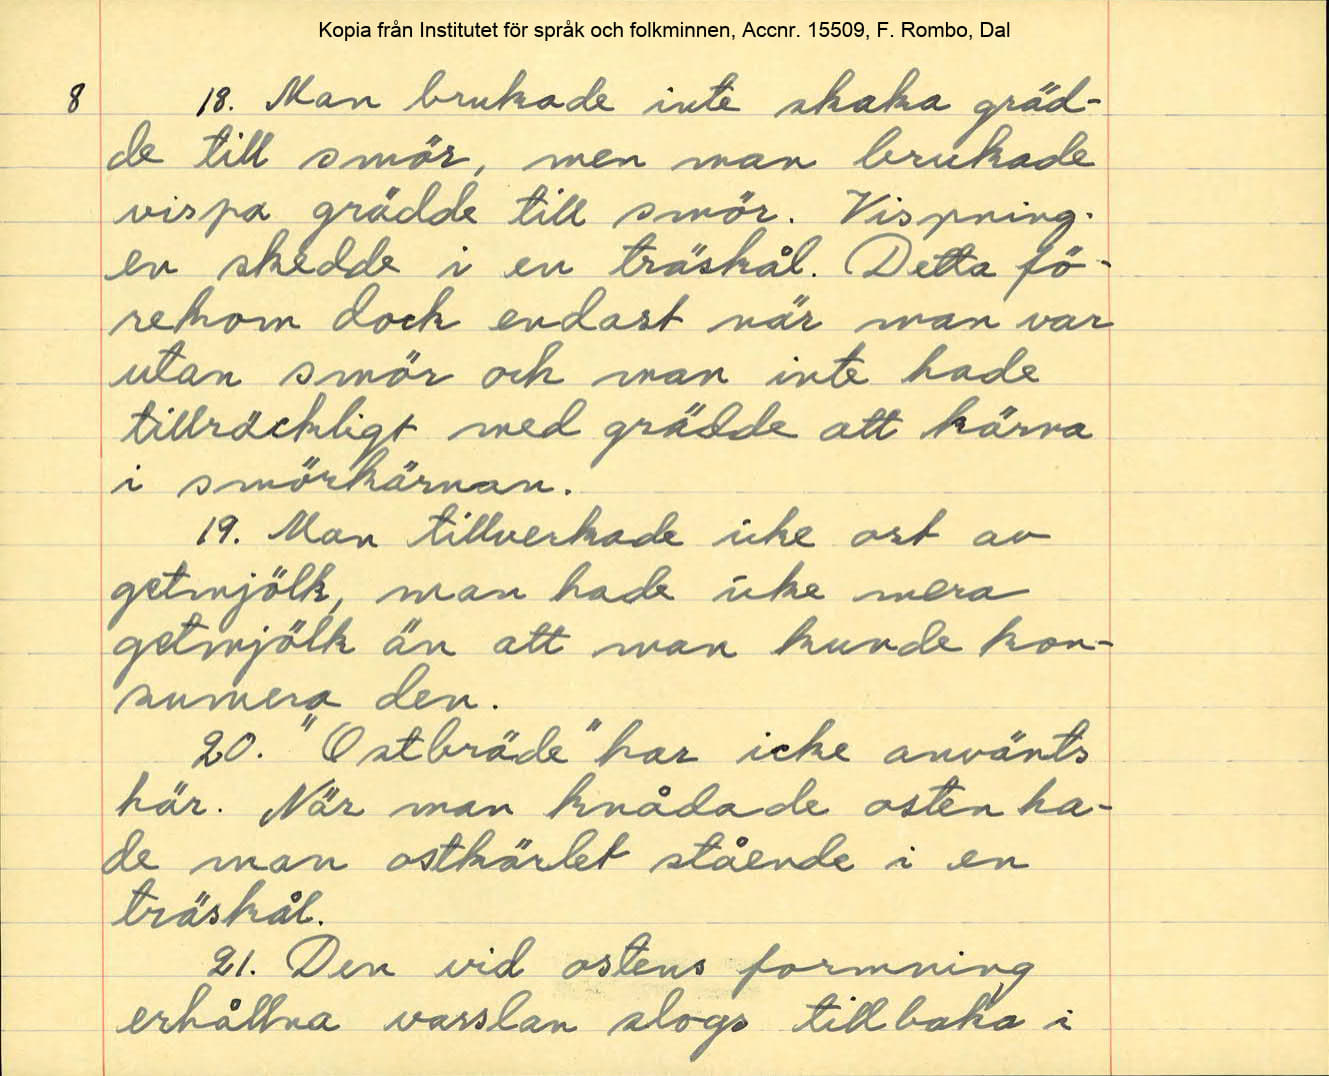 Kopia från Institutet för språk och folkminnen, Accnr. 15509, F. Rombo, Dal
8 18. Man brukade inte skaka gräd-
de till smör, men man brukade
vispa grädde till smör. Vispning-
en skedde i en träskål. Detta fö-
rekom dock endast när man var
utan smör och man inte hade
tillräckligt med grädde att kärna
i smörkärnan.
19. Man tillverkade icke ost av
getmjölk, man hade icke mera
getmjölk än att man kunde kon-
sumera den.
20. "Ostbräde" har icke använts
här. När man knådade osten ha-
de man ostkärlet stående i en
träskål.
21. Den vid ostens formning
erhållna vasslan slogs tillbaka i